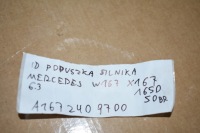 ID PODUSZKA SILNIKA
MERCEDES W167 X167
6.3 1650
50BR
A167 240 9700